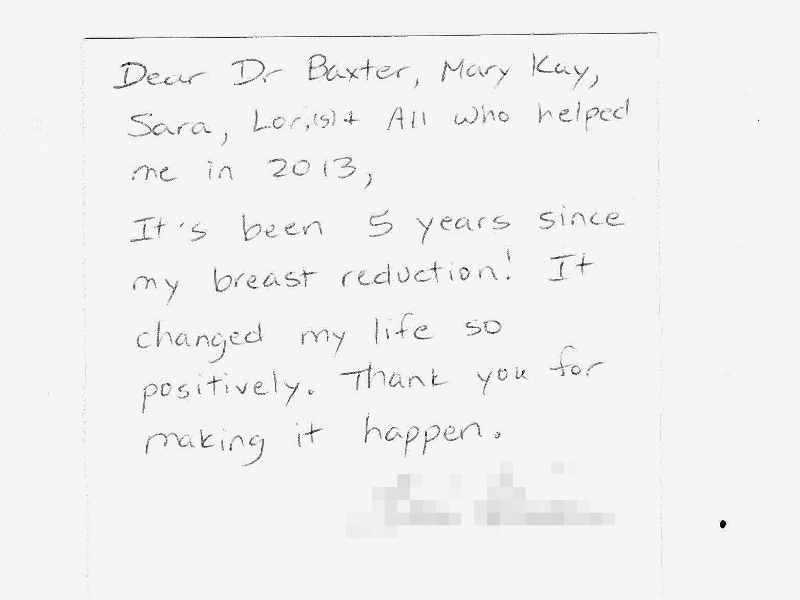 Dear Dr Baxter, Mary Kay,
Sara, Lori(s)+ All who helped
me in 2013,
It's been 5 years since
my breast reduction! It
changed my life so
positively. Thank you for
making it happen.